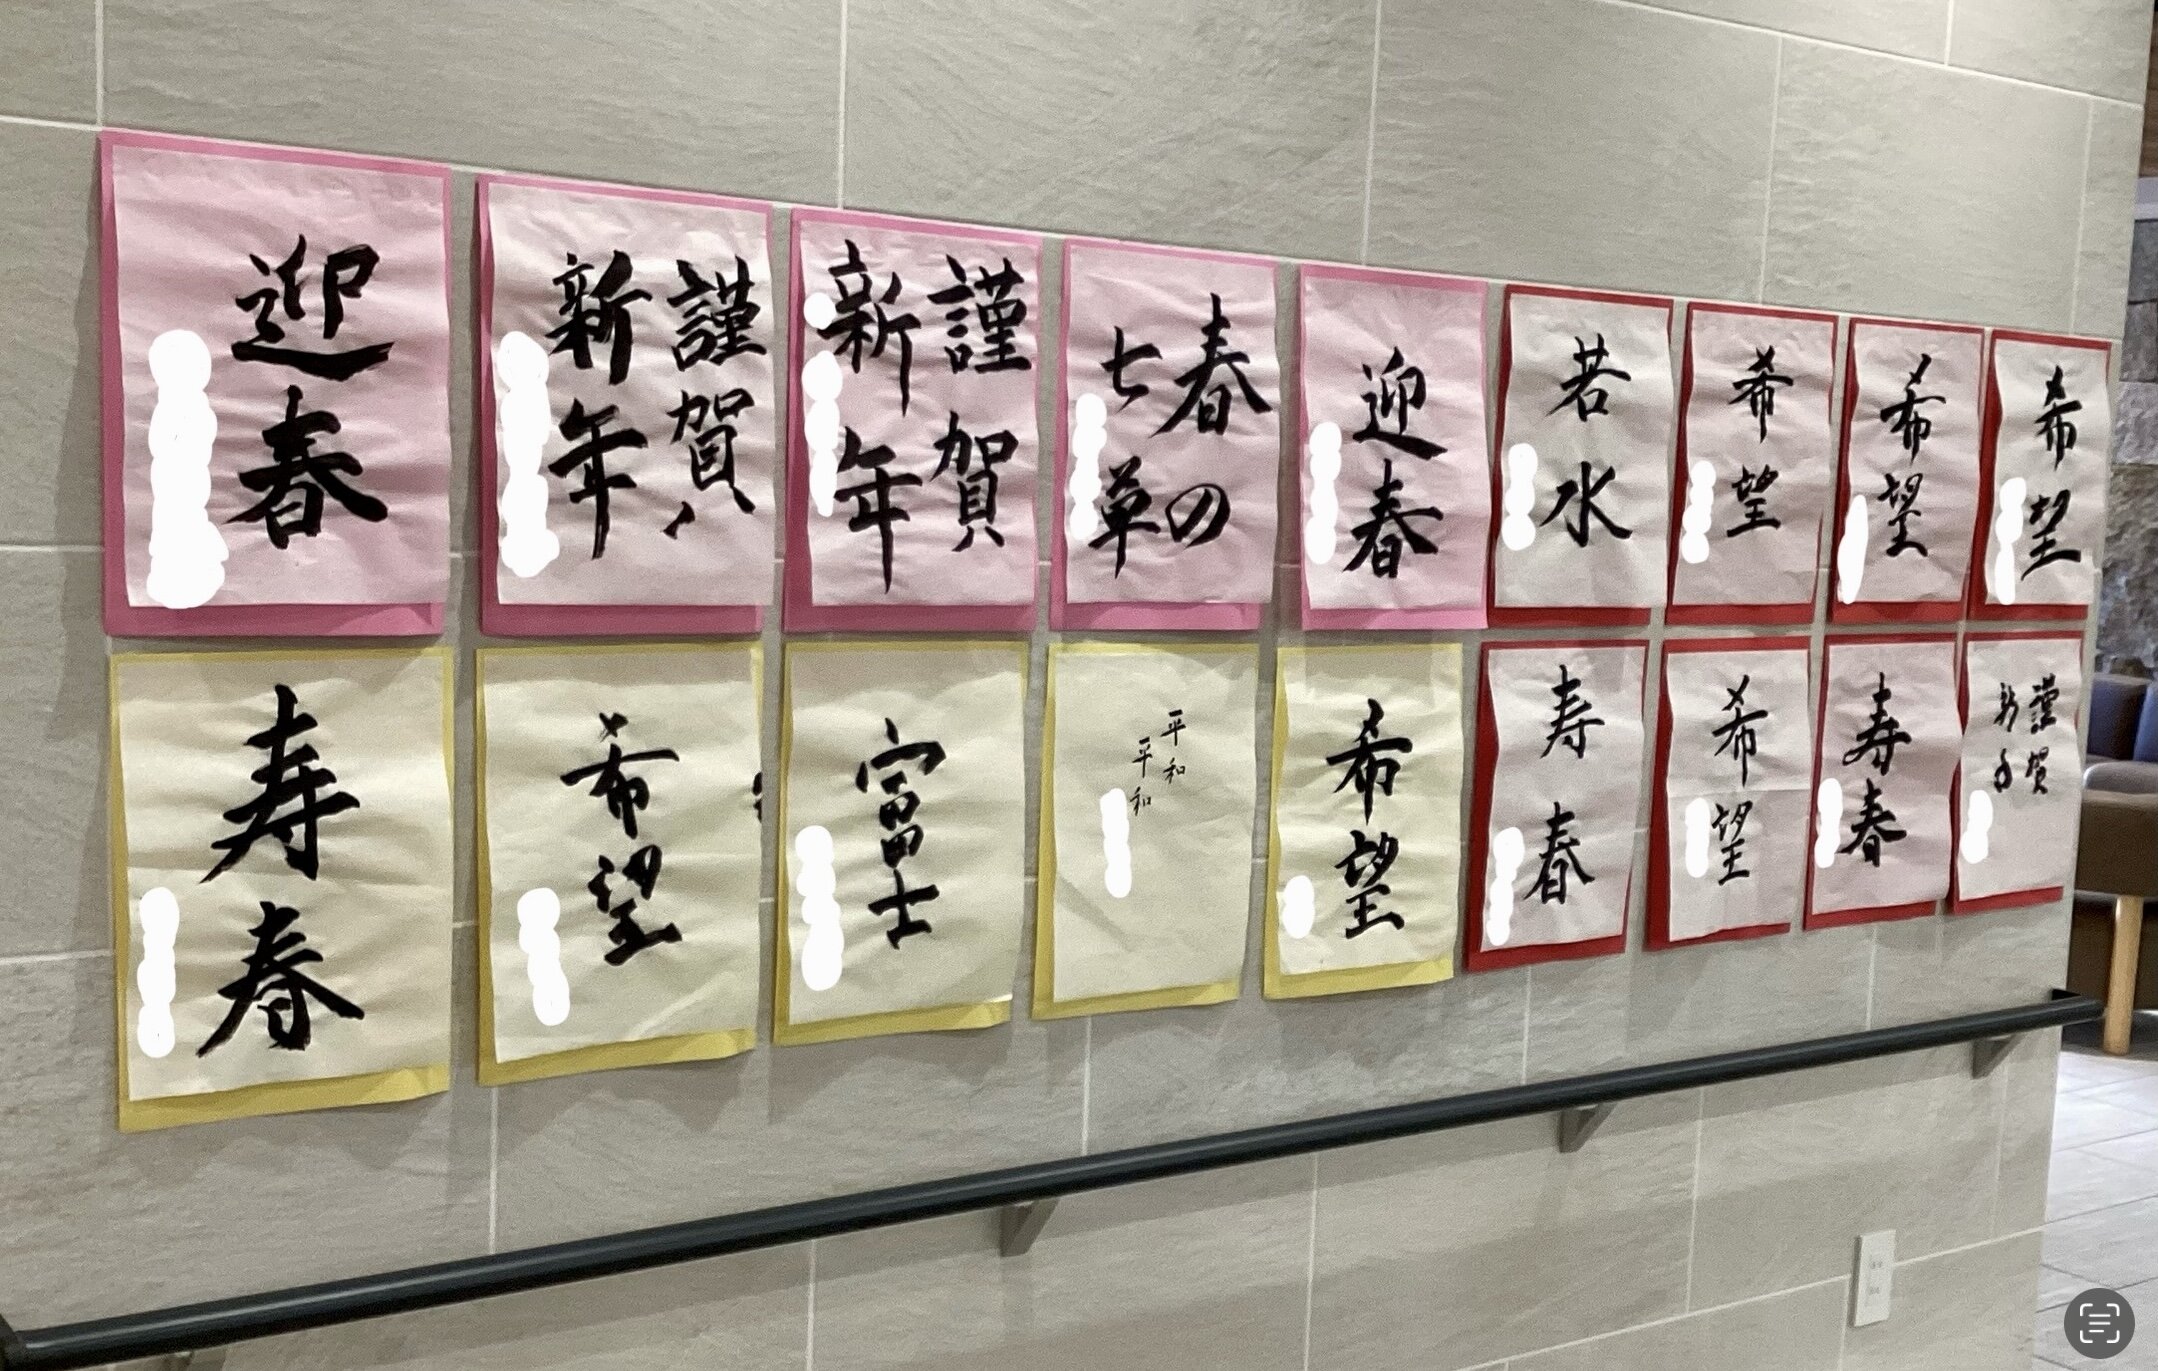 迎春
謹賀
新年
謹賀
新年
春の
七草
迎春
若水
希望
希望
希望
寿春
希望
富士
平和
平和
希望
寿春
希望
寿春
謹賀
新年